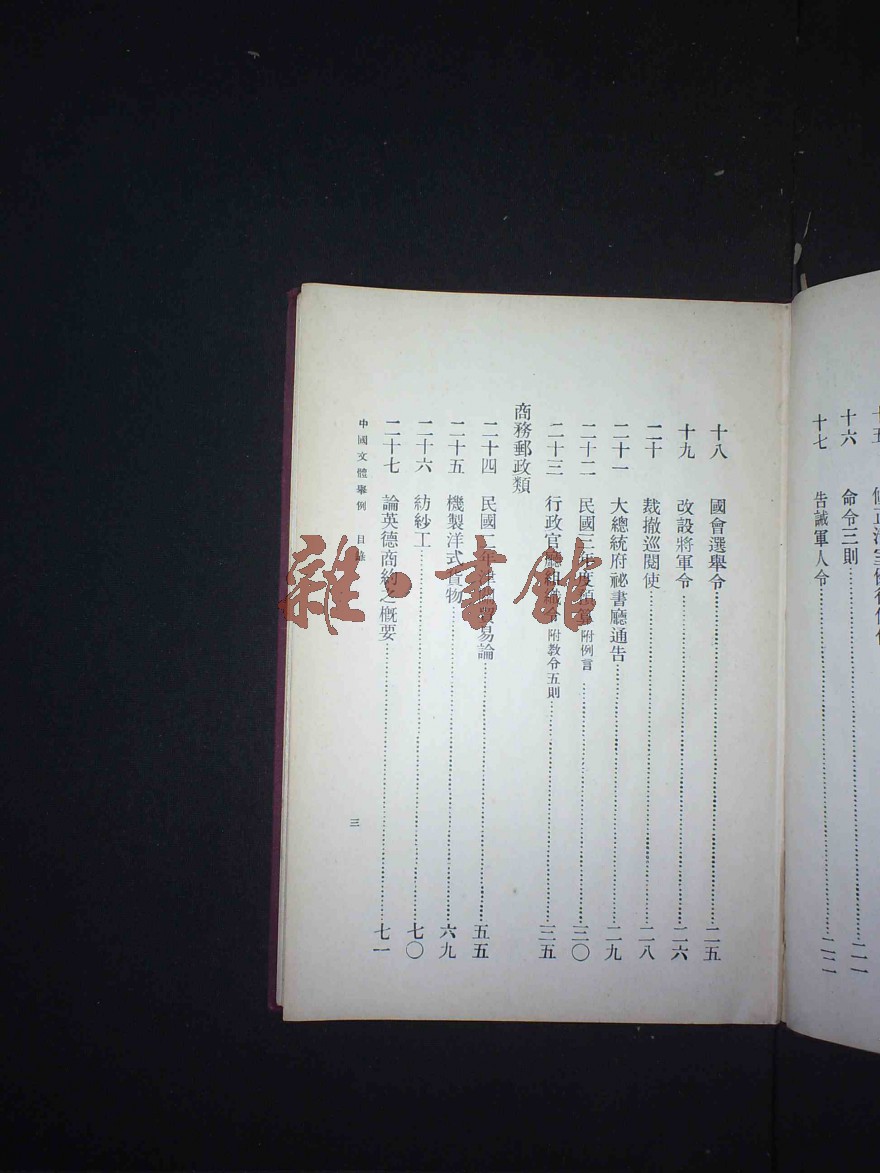 十六 命令三則……二一
十七 告誡軍人令……二二
十八 國會選舉令……二五
十九 改設將軍令……二六
二十 裁撤巡閱使……二八
二十一 大總統府祕書廳通告……二九
二十二 民國三年度預算 附例言……三〇
二十三 行政官廳組織令 附教令五則……三五
商務郵政類
二十四 民國二年津門貿易論……五五
二十五 機製洋式貨物……六九
二十六 紡紗工……七〇
二十七 論英德商約之概要……七一
中國文體舉例 目錄 三
雜·書館